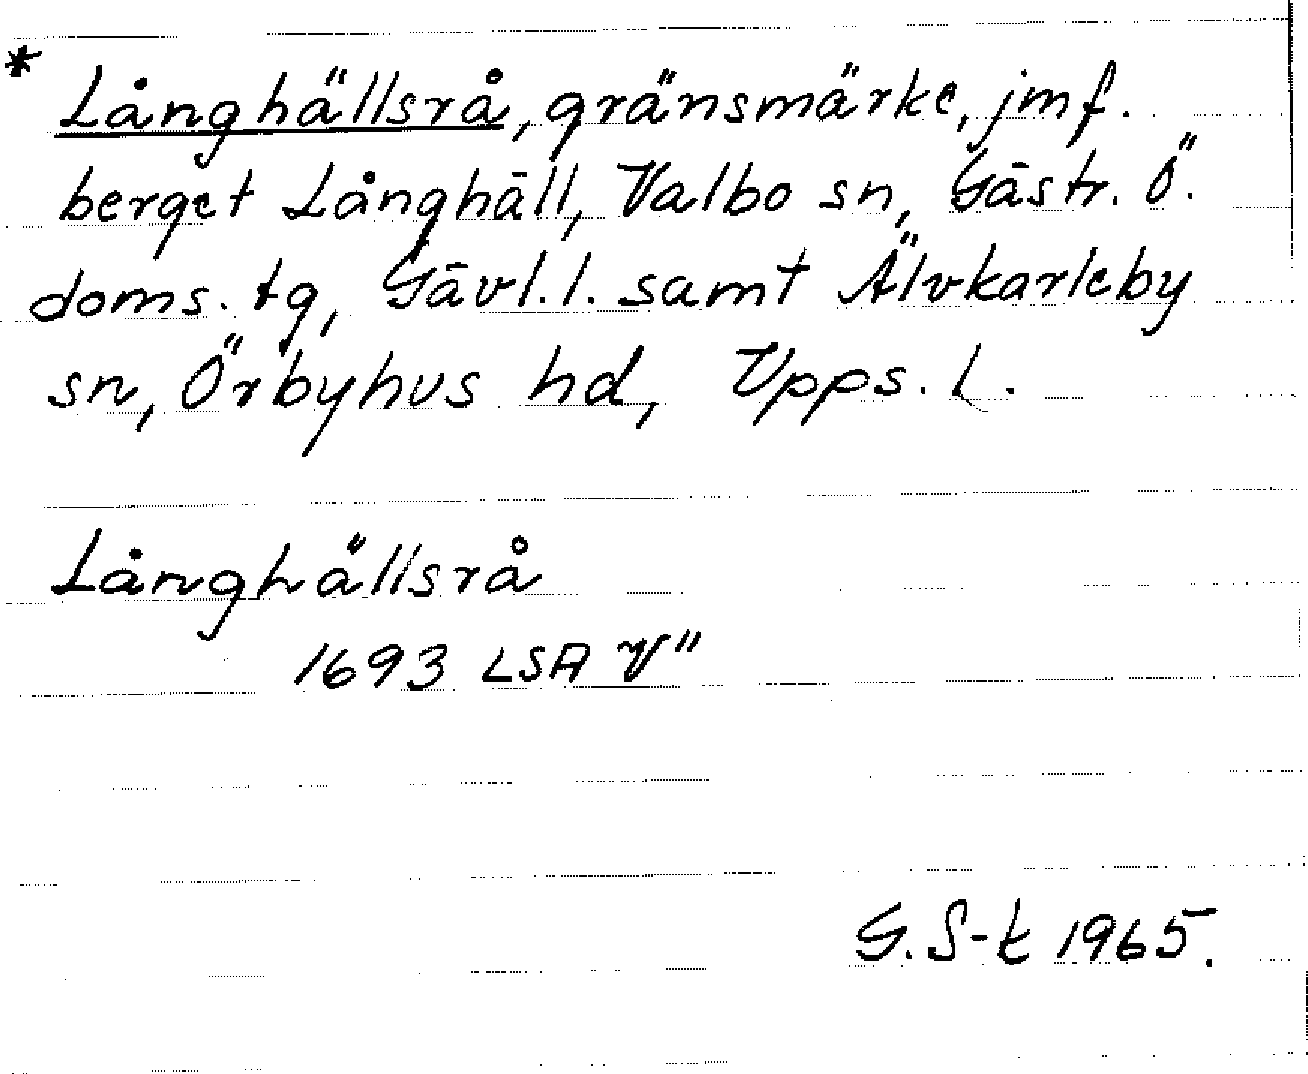 * Långhällsrå, gränsmärke, jmf.
berget Långhäll, Valbo sn, Gästr. Ö.
doms. tg, Gävl. l. samt Älvkarleby
sn, Örbyhus hd, Upps. l.
Långhällsrå
1693 LSA V"
G. S-t 1965.